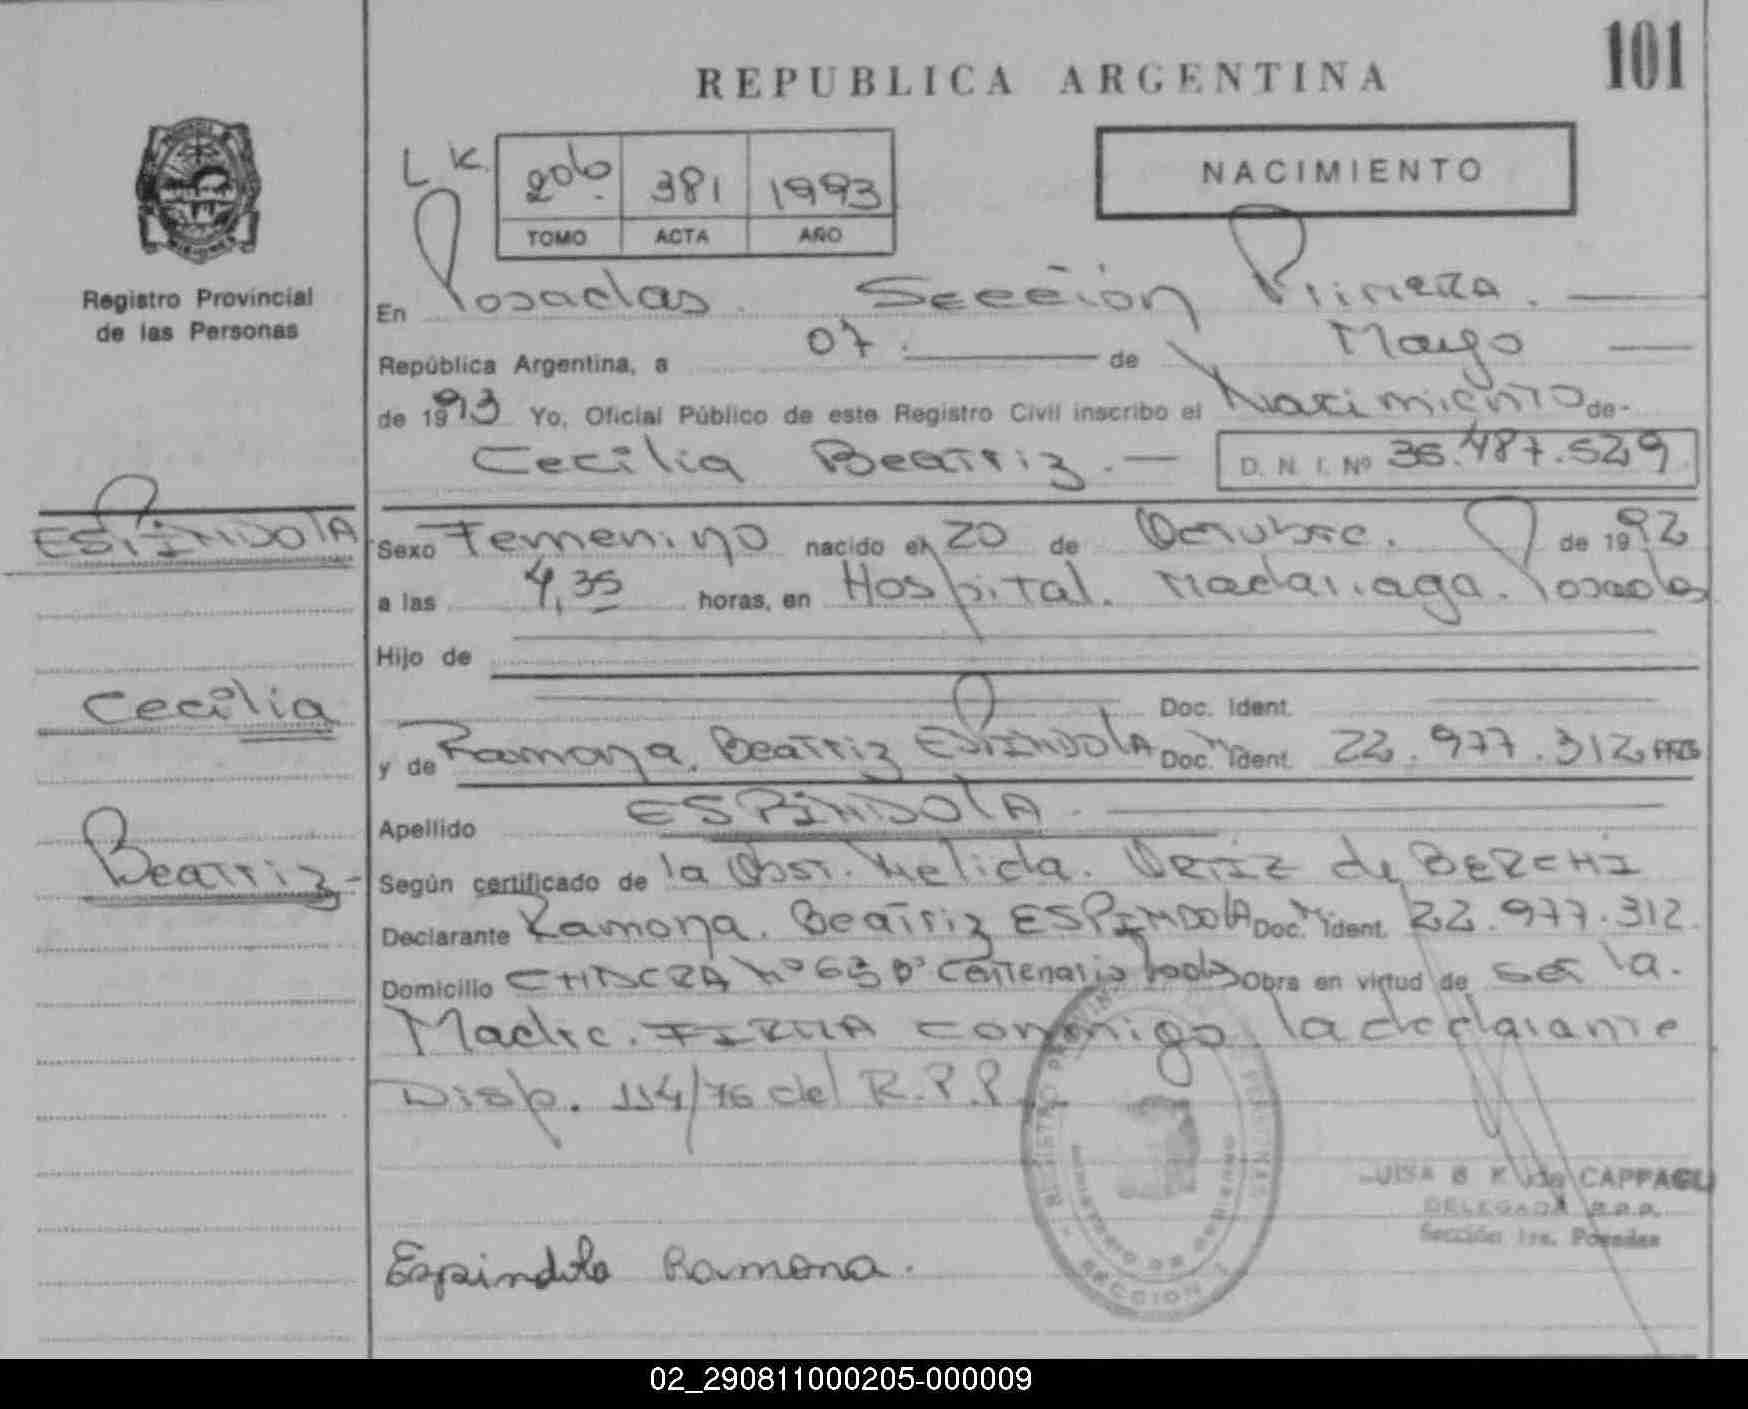 101
REPUBLICA ARGENTINA
L K.
206. 381 1993
TOMO ACTA AÑO
NACIMIENTO
Registro Provincial
de las Personas
En Posadas. Sección Primera.
República Argentina, a 07. de Mayo
de 1993 Yo, Oficial Público de este Registro Civil inscribo el Nacimiento de-
Cecilia Beatriz. — D. N. I. Nº 36.487.529
ESPÍNDOLA
Sexo Femenino nacido en 20 de Octubre. de 1992
a las 4,35 horas, en Hospital. Madariaga. Posadas
Hijo de
Cecilia
Doc. Ident.
y de Ramona. Beatriz ESPINDOLA Doc. Ident. 22.977.312
Apellido ESPÍNDOLA.
Beatriz-
Según certificado de la Obst. Nelida. ORTIZ de BERCHI
Declarante Ramona. Beatriz ESPINDOLA Doc. Ident. 22.977.312.
Domicilio CHACRA Nº 63 Bº Centenario Posdas Obra en virtud de ser la.
Madre. FIRMA conmigo la declarante
Disp. 114/76 del R.P.P.
REGISTRO PROVINCIAL PERSONAS
MINISTERIO DE GOBIERNO
SECCION 1
LUISA B K de CAPPAGLI
DELEGADA R.P.P.
Sección 1ra. Posadas
Espindola Ramona.
02_290811000205-000009